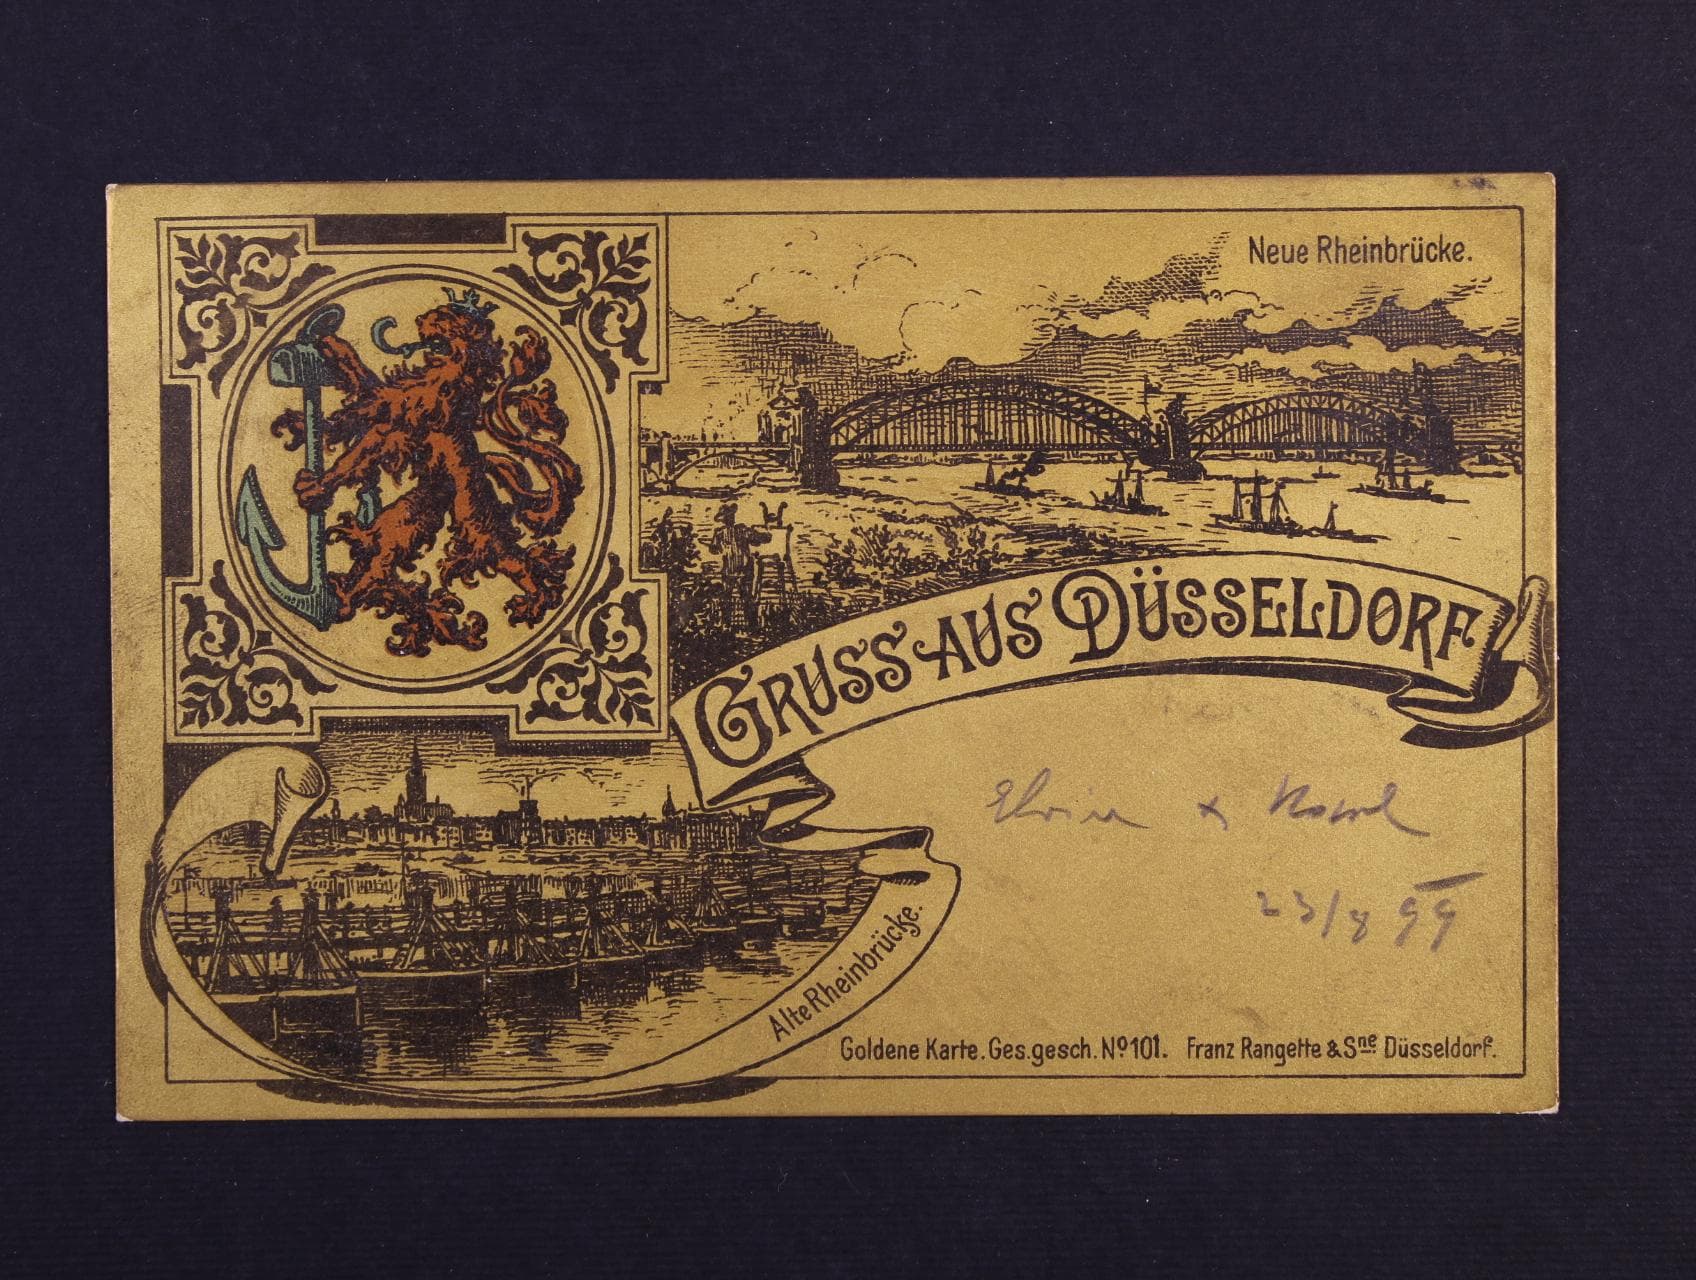 Neue Rheinbrücke.
GRUSS AUS DÜSSELDORF
23/8 99
Alte Rheinbrücke.
Goldene Karte. Ges. gesch. Nº 101. Franz Rangette & Sne Düsseldorf.